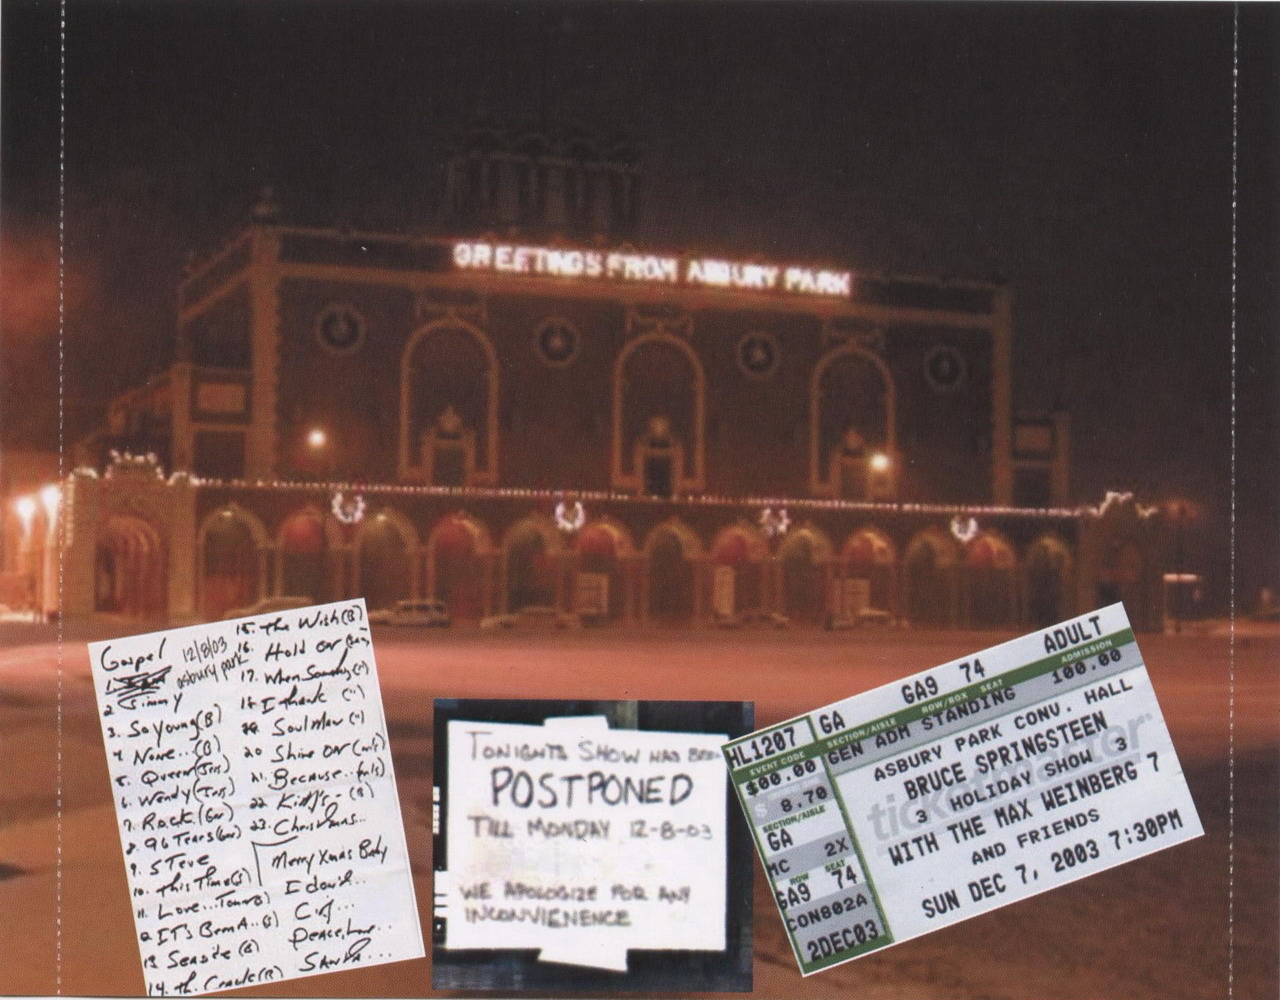 GREETINGS FROM ASBURY PARK
Gospel
12/8/03
asbury park
2. Jimmy
3. So Young (B)
4. None.. (B)
5. Queen
6. Wendy
7. Rock
8. 96 Tears
9. STeve
10. This Time
11. Love..
12. IT'S Been A..
13. Seaside (B)
14. th. Crack
15. The Wish (B)
16. Hold on
17. When Someday (")
18. I thank (")
19. Soul Man (")
20. Shine ON
21. Because..
22. Kitty's- (B)
23. Christmas..
Merry Xmas Baby
Peace, Love..
Santa...
TONIGHTS SHOW HAS BEE
POSTPONED
TILL MONDAY 12-8-03
WE APOLOGIZE FOR ANY
INCONVIENENCE
HL1207
EVENT CODE
$00.00
8.70
SECTION/AISLE
GA
MC 2X
ROW SEAT
GA9 74
CON802A
2DEC03
GA GA9 74 ADULT
SECTION/AISLE ROW/BOX SEAT ADMISSION
GEN ADM STANDING 100.00
ASBURY PARK CONV. HALL
BRUCE SPRINGSTEEN
3 HOLIDAY SHOW 3
WITH THE MAX WEINBERG 7
AND FRIENDS
SUN DEC 7, 2003 7:30PM
ticketmaster